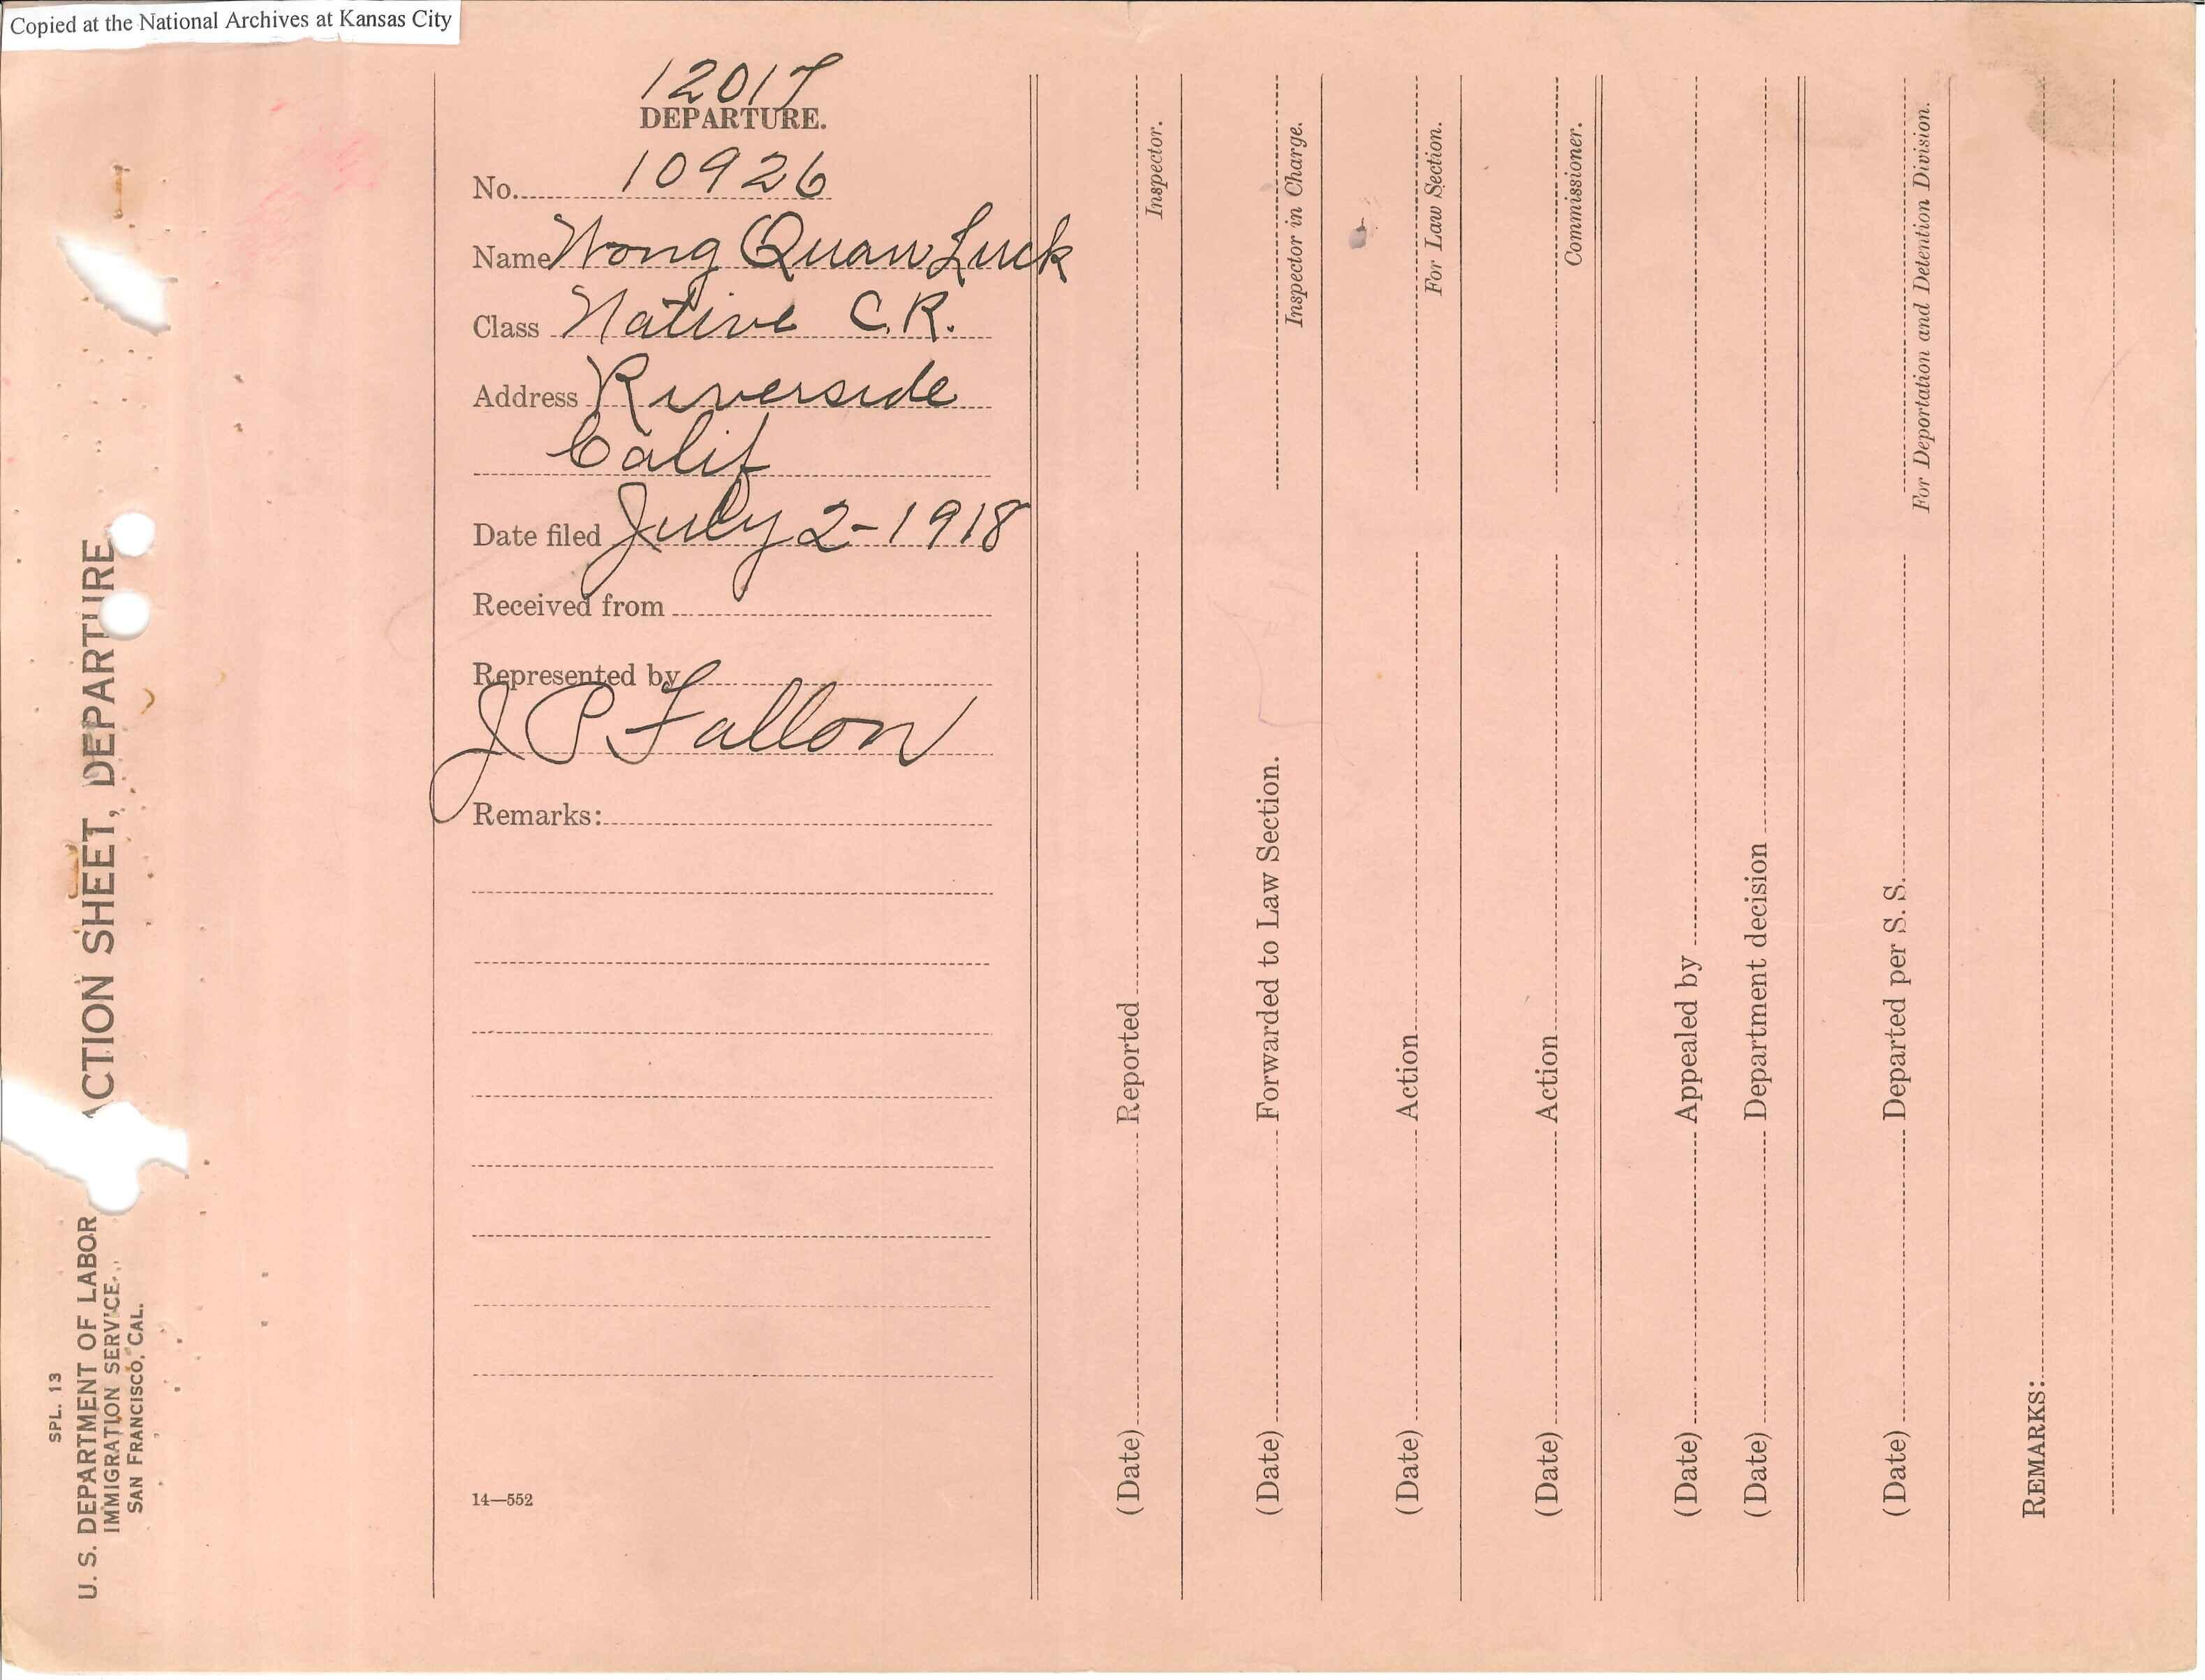 Copied at the National Archives at Kansas City
SPL. 13
U. S. DEPARTMENT OF LABOR
IMMIGRATION SERVICE
SAN FRANCISCO, CAL.
ACTION SHEET, DEPARTURE
12017
DEPARTURE.
No. 10926
Name Wong Quan Luck
Class Native C.R.
Address Riverside
Calif
Date filed July 2-1918
Received from
Represented by
J P Fallon
Remarks:
14—552
(Date) Reported
Inspector.
(Date) Forwarded to Law Section.
Inspector in Charge.
(Date) Action
For Law Section.
(Date) Action
Commissioner.
(Date) Appealed by
(Date) Department decision
(Date) Departed per S. S.
For Deportation and Detention Division.
REMARKS: